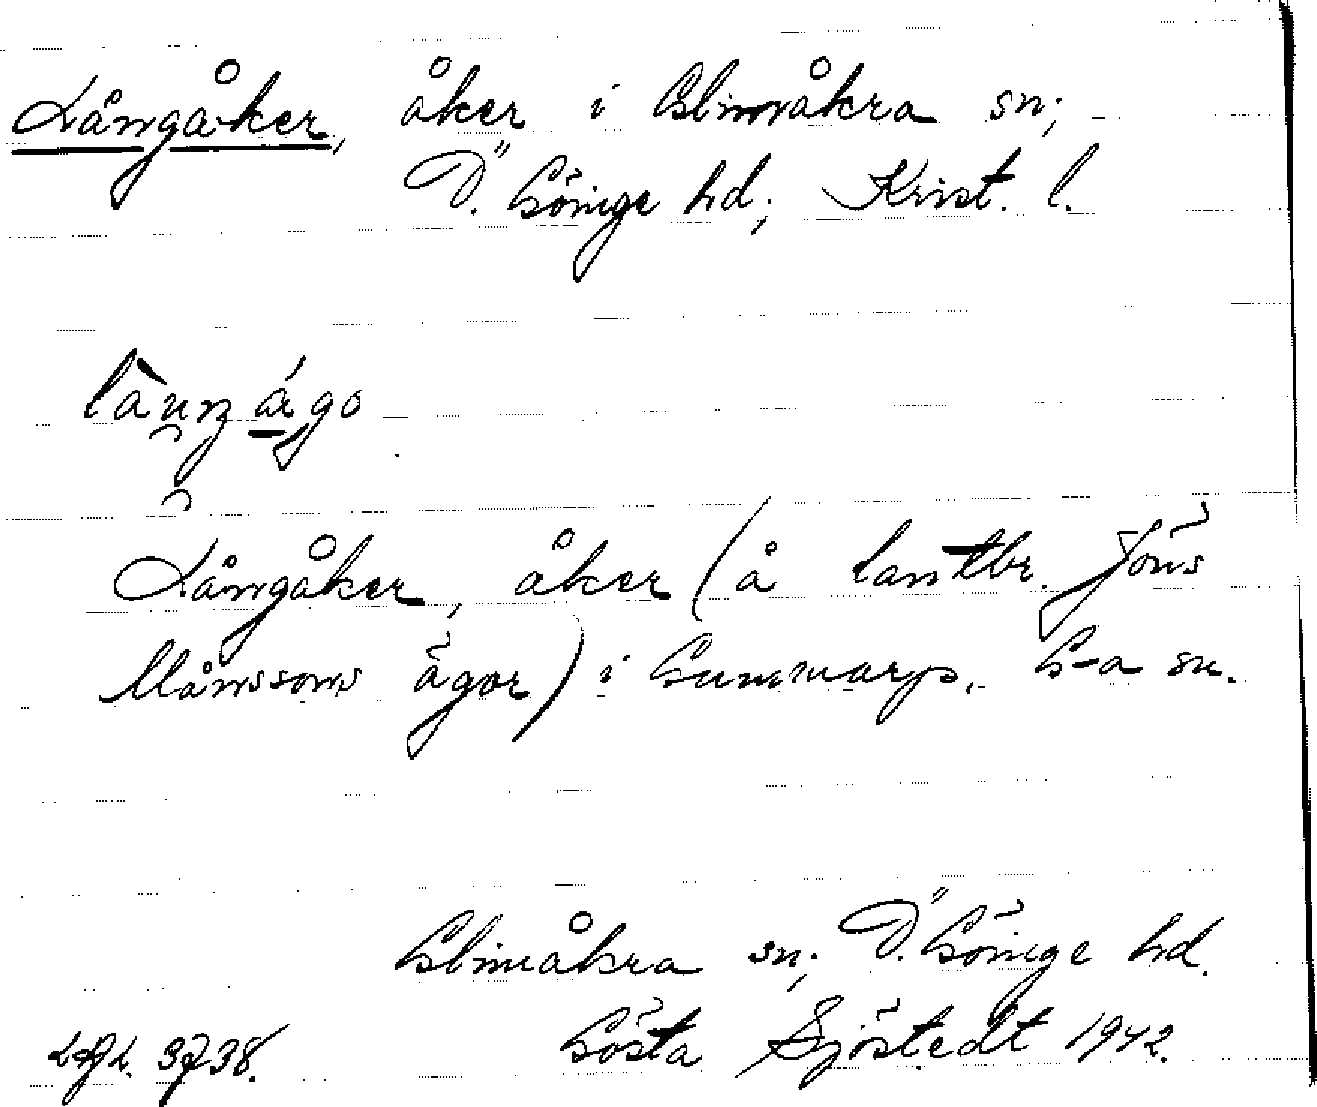 Långåker, åker i Glimåkra sn;
Ö. Göinge hd; Krist. l.
Långåker, åker (å lantbr. Jöns
Månssons ägor) i Gummarp. G-a sn.
Glimåkra sn; Ö. Göinge hd.
Gösta Sjöstedt 1942.
3738.